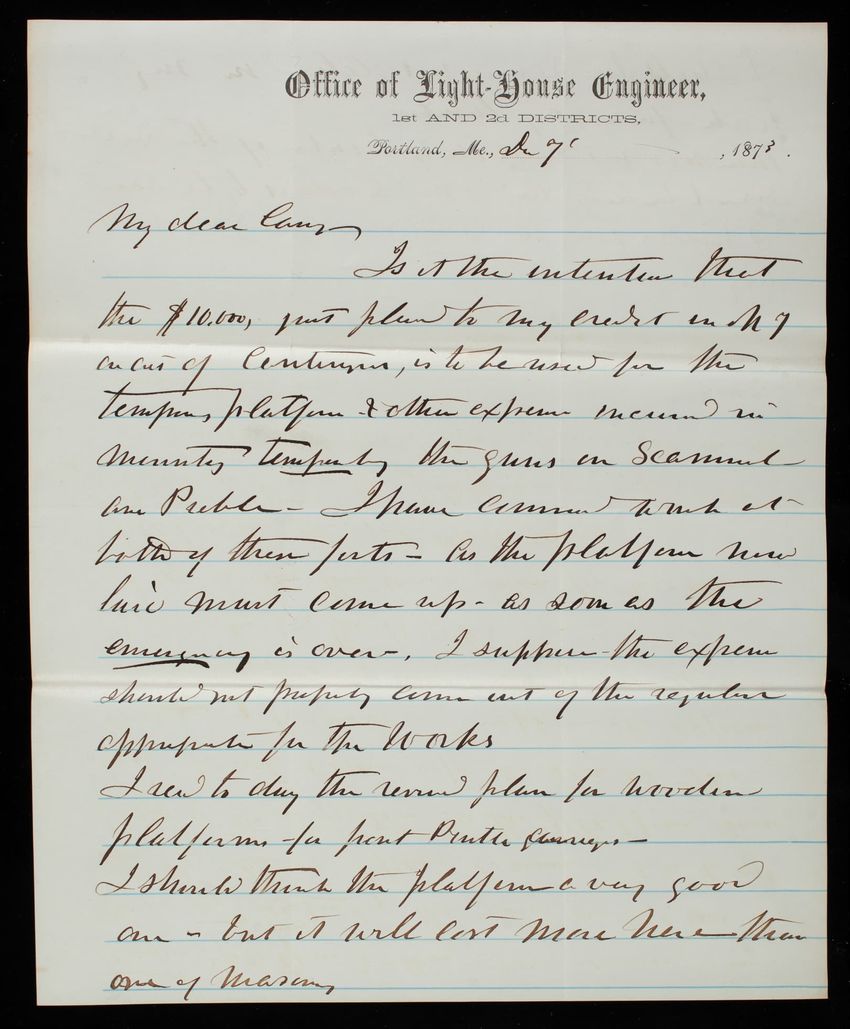 Office of Light-House Engineer,
1st AND 2d DISTRICTS,
Portland, Me., De 7' , 1873.
My dear Casey
Is it the intention that
the $10.000, just placed to my credit in N Y
on act of Contingen, is to be used for the
temporary platform & other expense incurred in
mounting temporarily the guns on Scammel
and Preble - I have commenced work at
both of these forts - as the platform now
laid must come up - as soon as the
emergency is over -. I suppose the expense
should not properly come out of the regular
appropriation for the Works
I recd to day the revised plan for wooden
platforms for front Pintle carriages -
I should think the platform a very good
one - but it will cost more here than
one of masonry